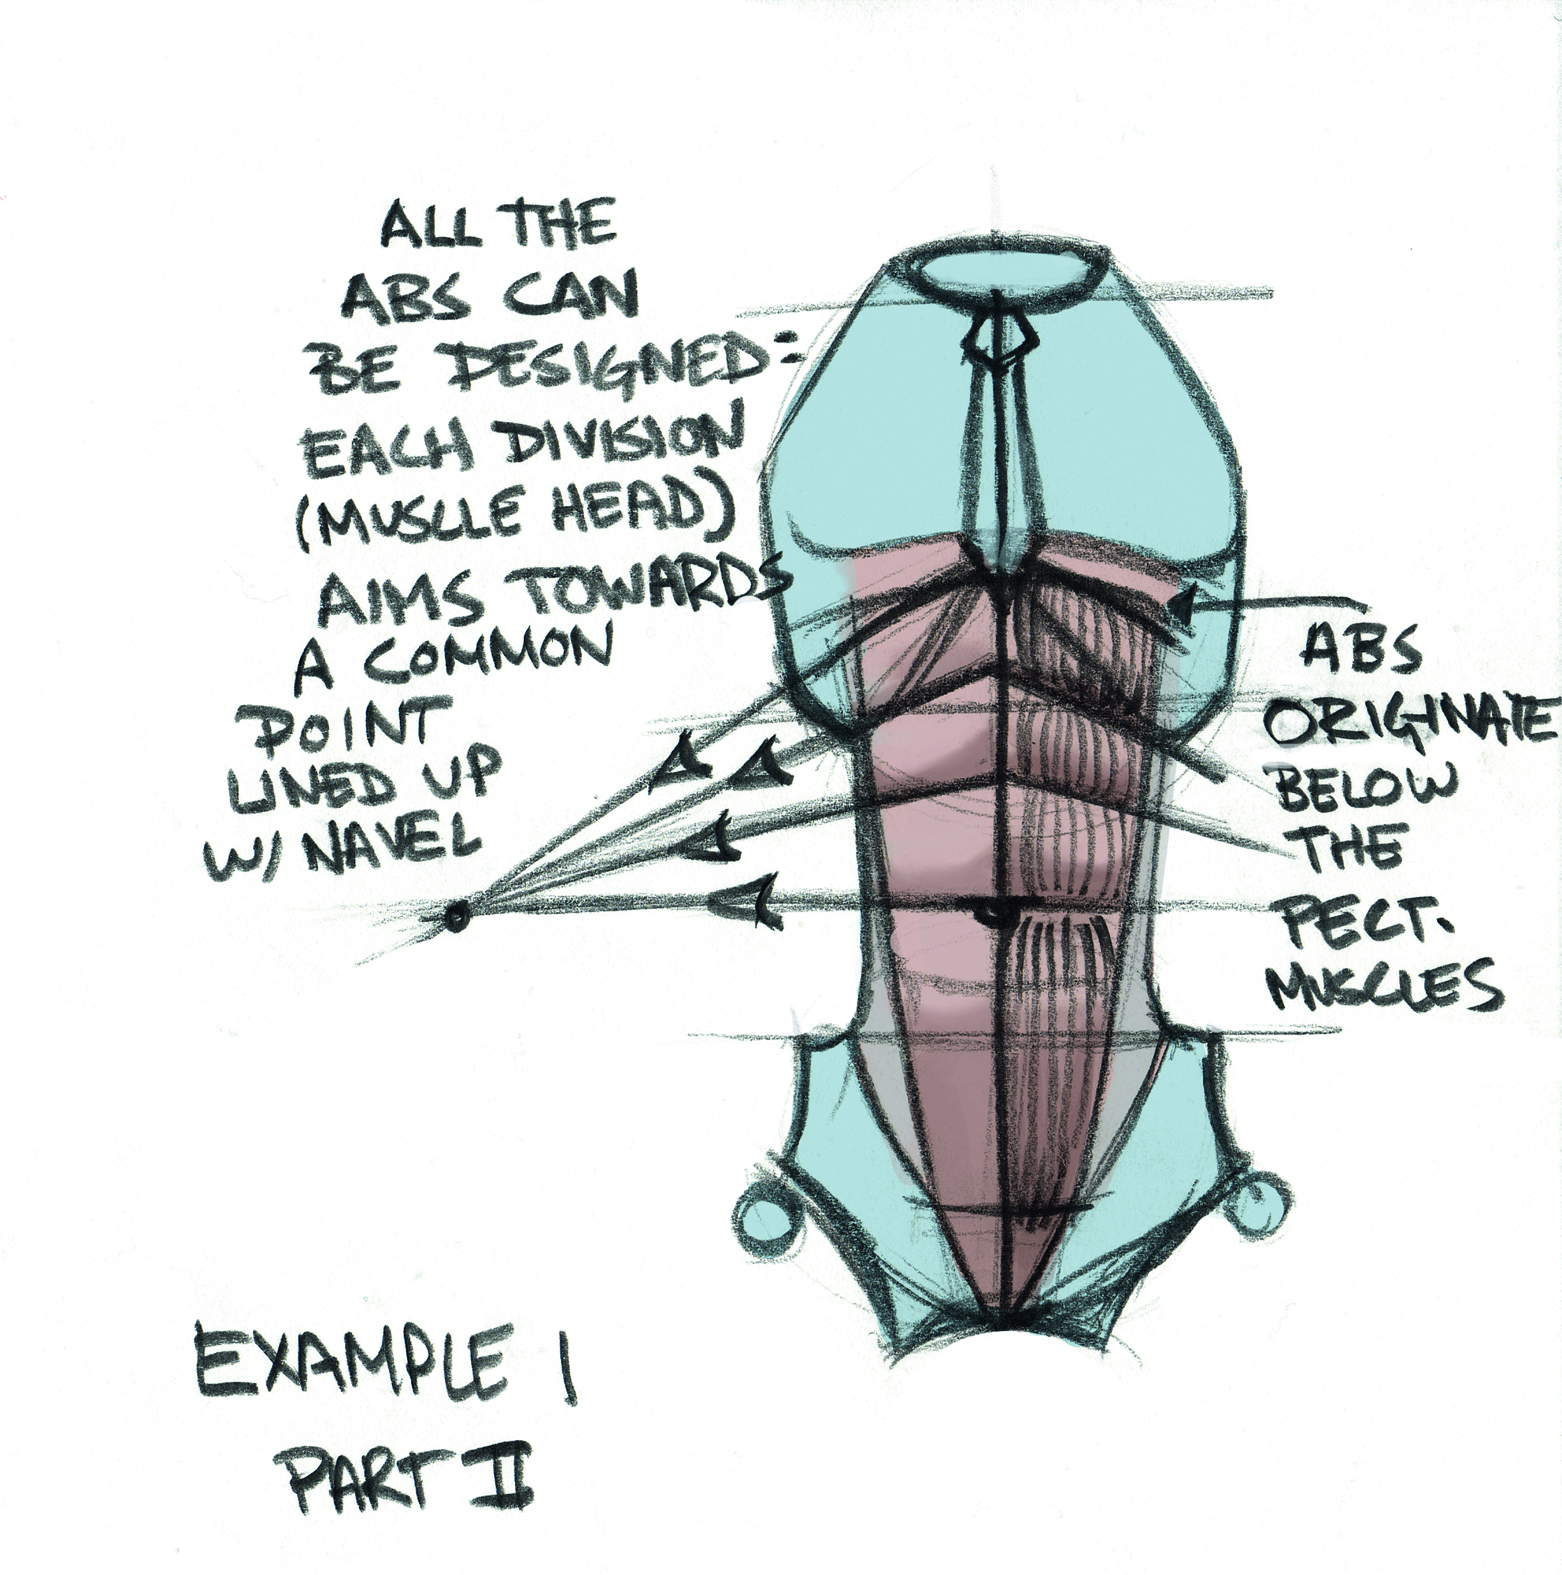 ALL THE
ABS CAN
BE DESIGNED:
EACH DIVISION
(MUSCLE HEAD)
AIMS TOWARDS
A COMMON
POINT
LINED UP
W/ NAVEL
ABS
ORIGINATE
BELOW
THE
PECT.
MUSCLES
EXAMPLE 1
PART II